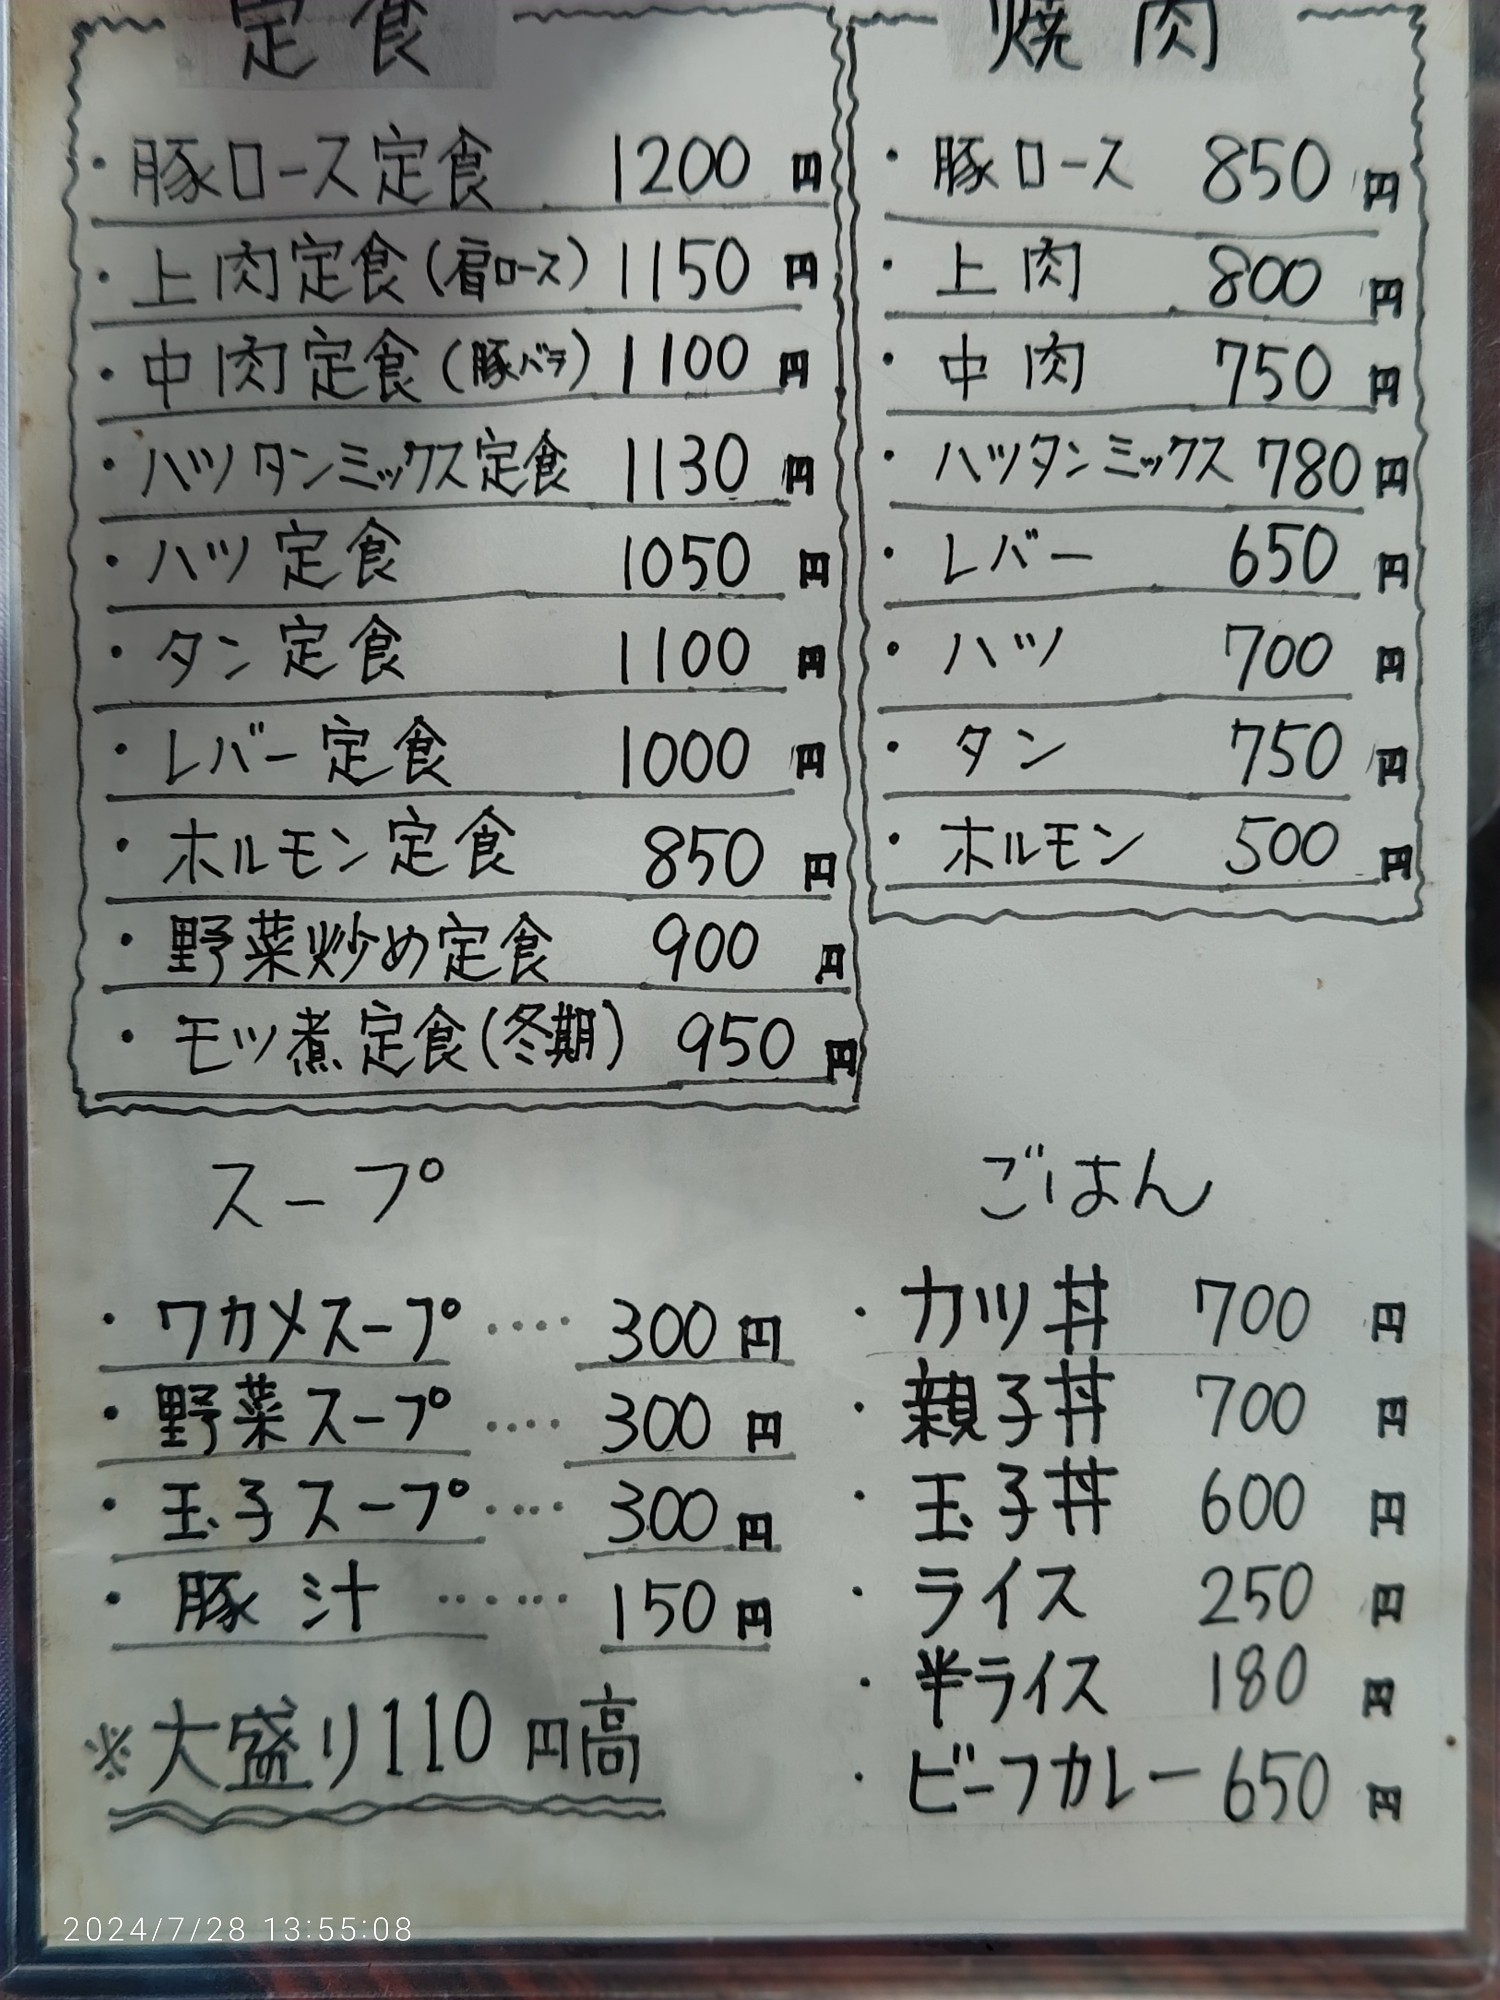 定食
・豚ロース定食 1200円
・上肉定食(肩ロース) 1150円
・中肉定食(豚バラ) 1100円
・ハツタンミックス定食 1130円
・ハツ定食 1050円
・タン定食 1100円
・レバー定食 1000円
・ホルモン定食 850円
・野菜炒め定食 900円
・モツ煮定食(冬期) 950円
焼肉
・豚ロース 850円
・上肉 800円
・中肉 750円
・ハツタンミックス 780円
・レバー 650円
・ハツ 700円
・タン 750円
・ホルモン 500円
スープ
・ワカメスープ‥‥300円
・野菜スープ‥‥300円
・玉子スープ‥‥300円
・豚汁‥‥‥150円
※大盛り110円高
ごはん
・カツ丼 700円
・親子丼 700円
・玉子丼 600円
・ライス 250円
・半ライス 180円
・ビーフカレー 650円
2024/7/28 13:55:08